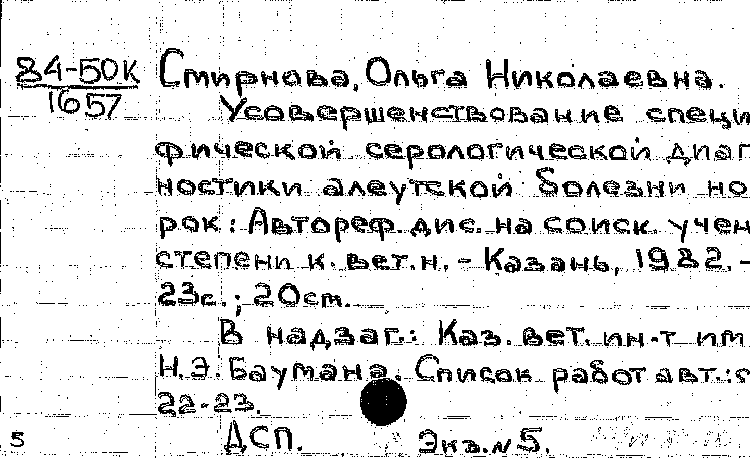 84-50К Смирнова, Ольга Николаевна.
1657 Усовершенствование специ
фической серологической диаг
ностики алеутской болезни но
рок: Автореф. дис. на соиск. учен
степени к. вет. н. - Казань, 1982. -
23с.; 20см.
В надзаг.: Каз. вет. ин-т им
Н.Э. Баумана. Список работ авт.: с
22-23.
ДСП. Экз. №5.
5